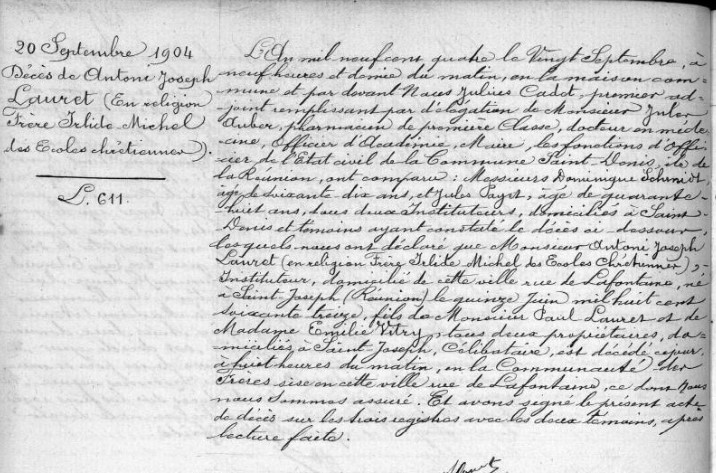 20 Septembre 1904
Décès de Antoni Joseph
Lauret (En religion
Frère Irlide Michel
des Ecoles chrétiennes).
L. 611.
L'An mil neuf cent quatre le Vingt Septembre, à
neuf heures et demie du matin, en la maison com-
mune et par devant Nous Julius Cadot, premier ad-
joint remplissant par délégation de Monsieur Jules
Auber, pharmacien de première Classe, docteur en méde-
cine, Officier d'Académie, Maire, les fonctions d'Offi-
cier de l'Etat civil de la Commune Saint-Denis, île de
la Réunion, ont comparu : Messieurs Dominique Schmidt
âgé de soixante-dix ans, et Jules Payet, âgé de quarante-
huit ans, tous deux Instituteurs, domiciliés à Saint-
Denis et témoins ayant constaté le décès ci-dessous,
lesquels nous ont déclaré que Monsieur Antoni Joseph
Lauret (en religion Frère Irlide Michel des Ecoles Chrétiennes),
Instituteur, domicilié de cette ville rue de Lafontaine, né
à Saint-Joseph (Réunion) le quinze Juin mil huit cent
soixante treize, fils de Monsieur Paul Lauret et de
Madame Emilie Vitry, tous deux propriétaires, do-
miciliés à Saint-Joseph, Célibataire, est décédé ce jour,
à huit heures du matin, en la Communauté des
Frères sise en cette ville rue de Lafontaine, ce dont Nous
nous sommes assuré. Et avons signé le présent acte
de décès sur les trois registres avec les deux témoins, après
lecture faite.